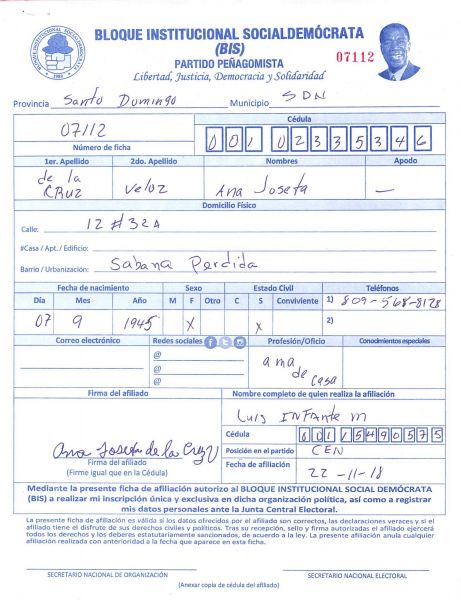 BLOQUE INSTITUCIONAL SOCIALDEMÓCRATA
(BIS)
PARTIDO PEÑAGOMISTA
Libertad, Justicia, Democracia y Solidaridad
07112
Provincia Santo Domingo Municipio SDN
07112
Número de ficha
Cédula
001 0233534 6
1er. Apellido 2do. Apellido Nombres Apodo
de la CRUZ Veloz Ana Josefa —
Domicilio Físico
Calle: 12 # 32A
#Casa / Apt. / Edificio:
Barrio / Urbanización: Sabana Perdida
Fecha de nacimiento Sexo Estado Civil Teléfonos
Día Mes Año M F Otro C S Conviviente 1) 809-568-8128
07 9 1945 X X 2)
Correo electrónico Redes sociales Profesión/Oficio Conocimientos especiales
@
@
@
ama de casa
Firma del afiliado Nombre completo de quien realiza la afiliación
Luis INFante m
Cédula 001 1549057 5
Ana Josefa de la Cruz V
Posición en el partido CEN
Firma del afiliado
(Firme igual que en la Cédula)
Fecha de afiliación 22-11-18
Mediante la presente ficha de afiliación autorizo al BLOQUE INSTITUCIONAL SOCIAL DEMÓCRATA
(BIS) a realizar mi inscripción única y exclusiva en dicha organización política, así como a registrar
mis datos personales ante la Junta Central Electoral.
La presente ficha de afiliación es válida si los datos ofrecidos por el afiliado son correctos, las declaraciones veraces y si el
afiliado tiene el disfrute de sus derechos civiles y políticos. Tras su recepción, sello y firma autorizadas el afiliado ejercerá
todos los derechos y los deberes estatutariamente sancionados, de acuerdo a la ley. La presente afiliación anula cualquier
afiliación realizada con anterioridad a la fecha que aparece en esta ficha.
SECRETARIO NACIONAL DE ORGANIZACIÓN SECRETARIO NACIONAL ELECTORAL
(Anexar copia de cédula del afiliado)